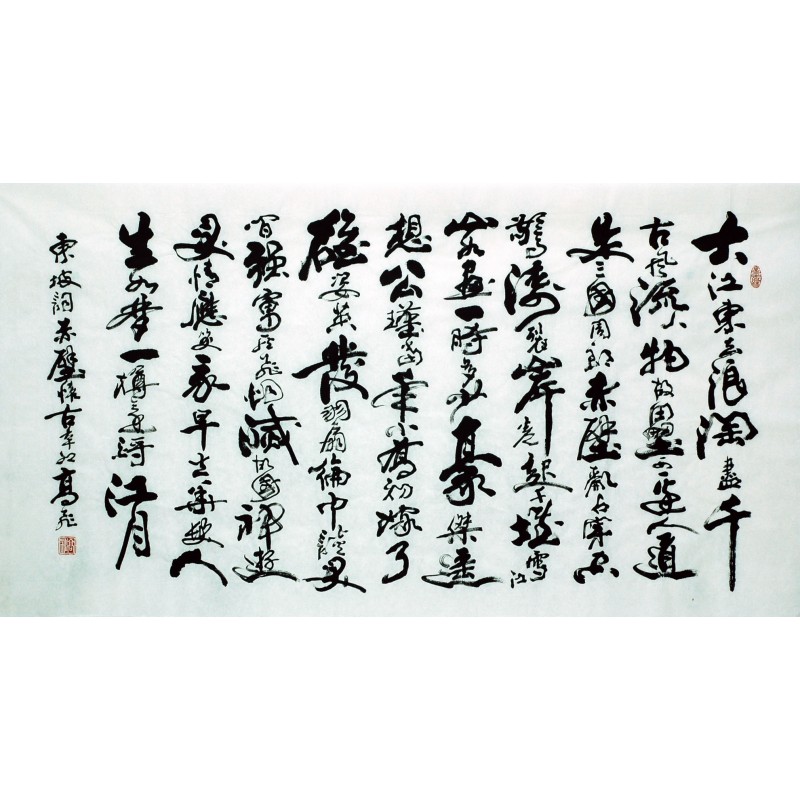 大江東去浪淘盡千
古風流人物故壘西邊人道
是三國周郎赤壁亂石穿空
驚濤裂岸卷起千堆雪江
山如畫一時多少豪傑遙
想公瑾當年小喬初嫁了
雄姿英發羽扇綸巾談笑
間強虜灰飛煙滅故國神遊
多情應笑我早生華髮人
生如夢一樽還酹江月
東坡詞赤壁懷古辛卯高飛